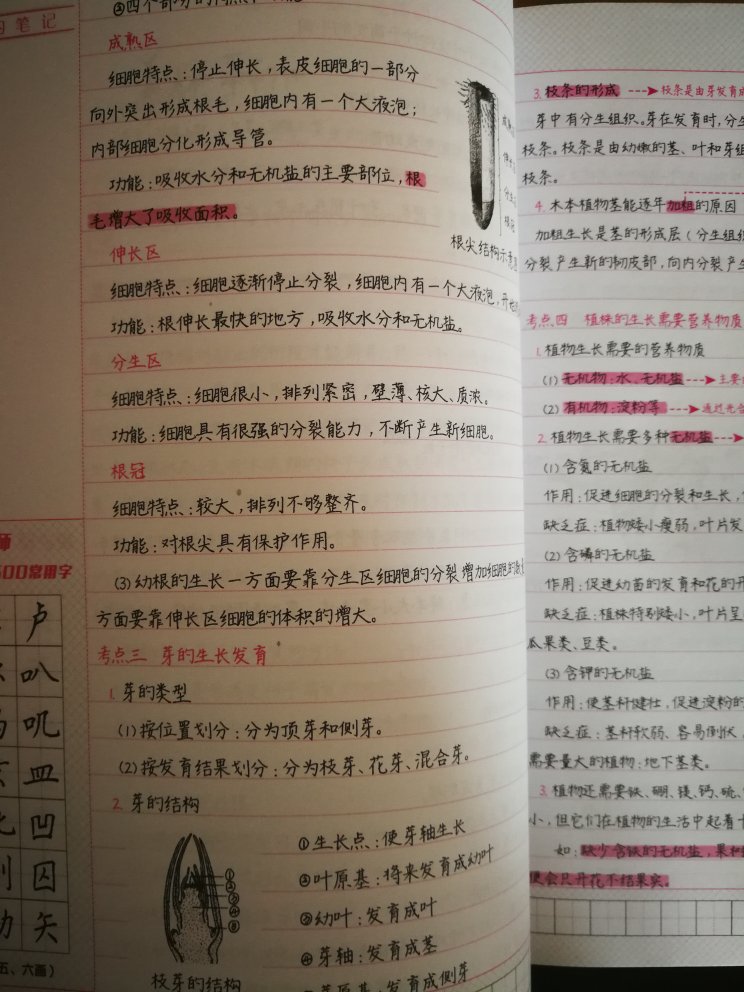 的笔记
②四个部分的
成熟区
细胞特点:停止伸长,表皮细胞的一部分
向外突出形成根毛,细胞内有一个大液泡;
内部细胞分化形成导管。
功能:吸收水分和无机盐的主要部位,根
毛增大了吸收面积。
根尖结构示意图
伸长区
细胞特点:细胞逐渐停止分裂,细胞内有一个大液泡,开始
功能:根伸长最快的地方,吸收水分和无机盐。
分生区
细胞特点:细胞很小,排列紧密,壁薄、核大、质浓。
功能:细胞具有很强的分裂能力,不断产生新细胞。
根冠
细胞特点:较大,排列不够整齐。
功能:对根尖具有保护作用。
(3)幼根的生长一方面要靠分生区细胞的分裂增加细胞的数
方面要靠伸长区细胞的体积的增大。
考点三 芽的生长发育
1.芽的类型
(1)按位置划分:分为顶芽和侧芽。
(2)按发育结果划分:分为枝芽、花芽、混合芽。
2.芽的结构
①生长点:使芽轴生长
②叶原基:将来发育成幼叶
③幼叶:发育成叶
④芽轴:发育成茎
芽原基:发育成侧芽
①
②
③
④
⑤
枝芽的结构
师
500常用字
卢
叭
叽
皿
凹
囚
矢
五、六画)
3.枝条的形成 枝条是由芽发育成
芽中有分生组织。芽在发育时,分生
枝条。枝条是由幼嫩的茎、叶和芽组
枝条。
4.木本植物茎能逐年加粗的原因
加粗生长是茎的形成层(分生组织
分裂产生新的韧皮部,向内分裂产生
考点四 植株的生长需要营养物质
1.植物生长需要的营养物质
(1)无机物:水、无机盐 主要
(2)有机物:淀粉等 通过光合
2.植物生长需要多种无机盐
(1)含氮的无机盐
作用:促进细胞的分裂和生长,
缺乏症:植物矮小瘦弱,叶片发
(2)含磷的无机盐
作用:促进幼苗的发育和花的开
缺乏症:植株特别矮小,叶片呈
瓜果类、豆类。
(3)含钾的无机盐
作用:使茎秆健壮,促进淀粉的
缺乏症:茎秆软弱、容易倒伏,
需要量大的植物:地下茎类。
3.植物还需要铁、硼、镁、钙、硫、
小,但它们在植物的生活中起着十
如:缺少含硼的无机盐,果和
便会只开花不结果实。